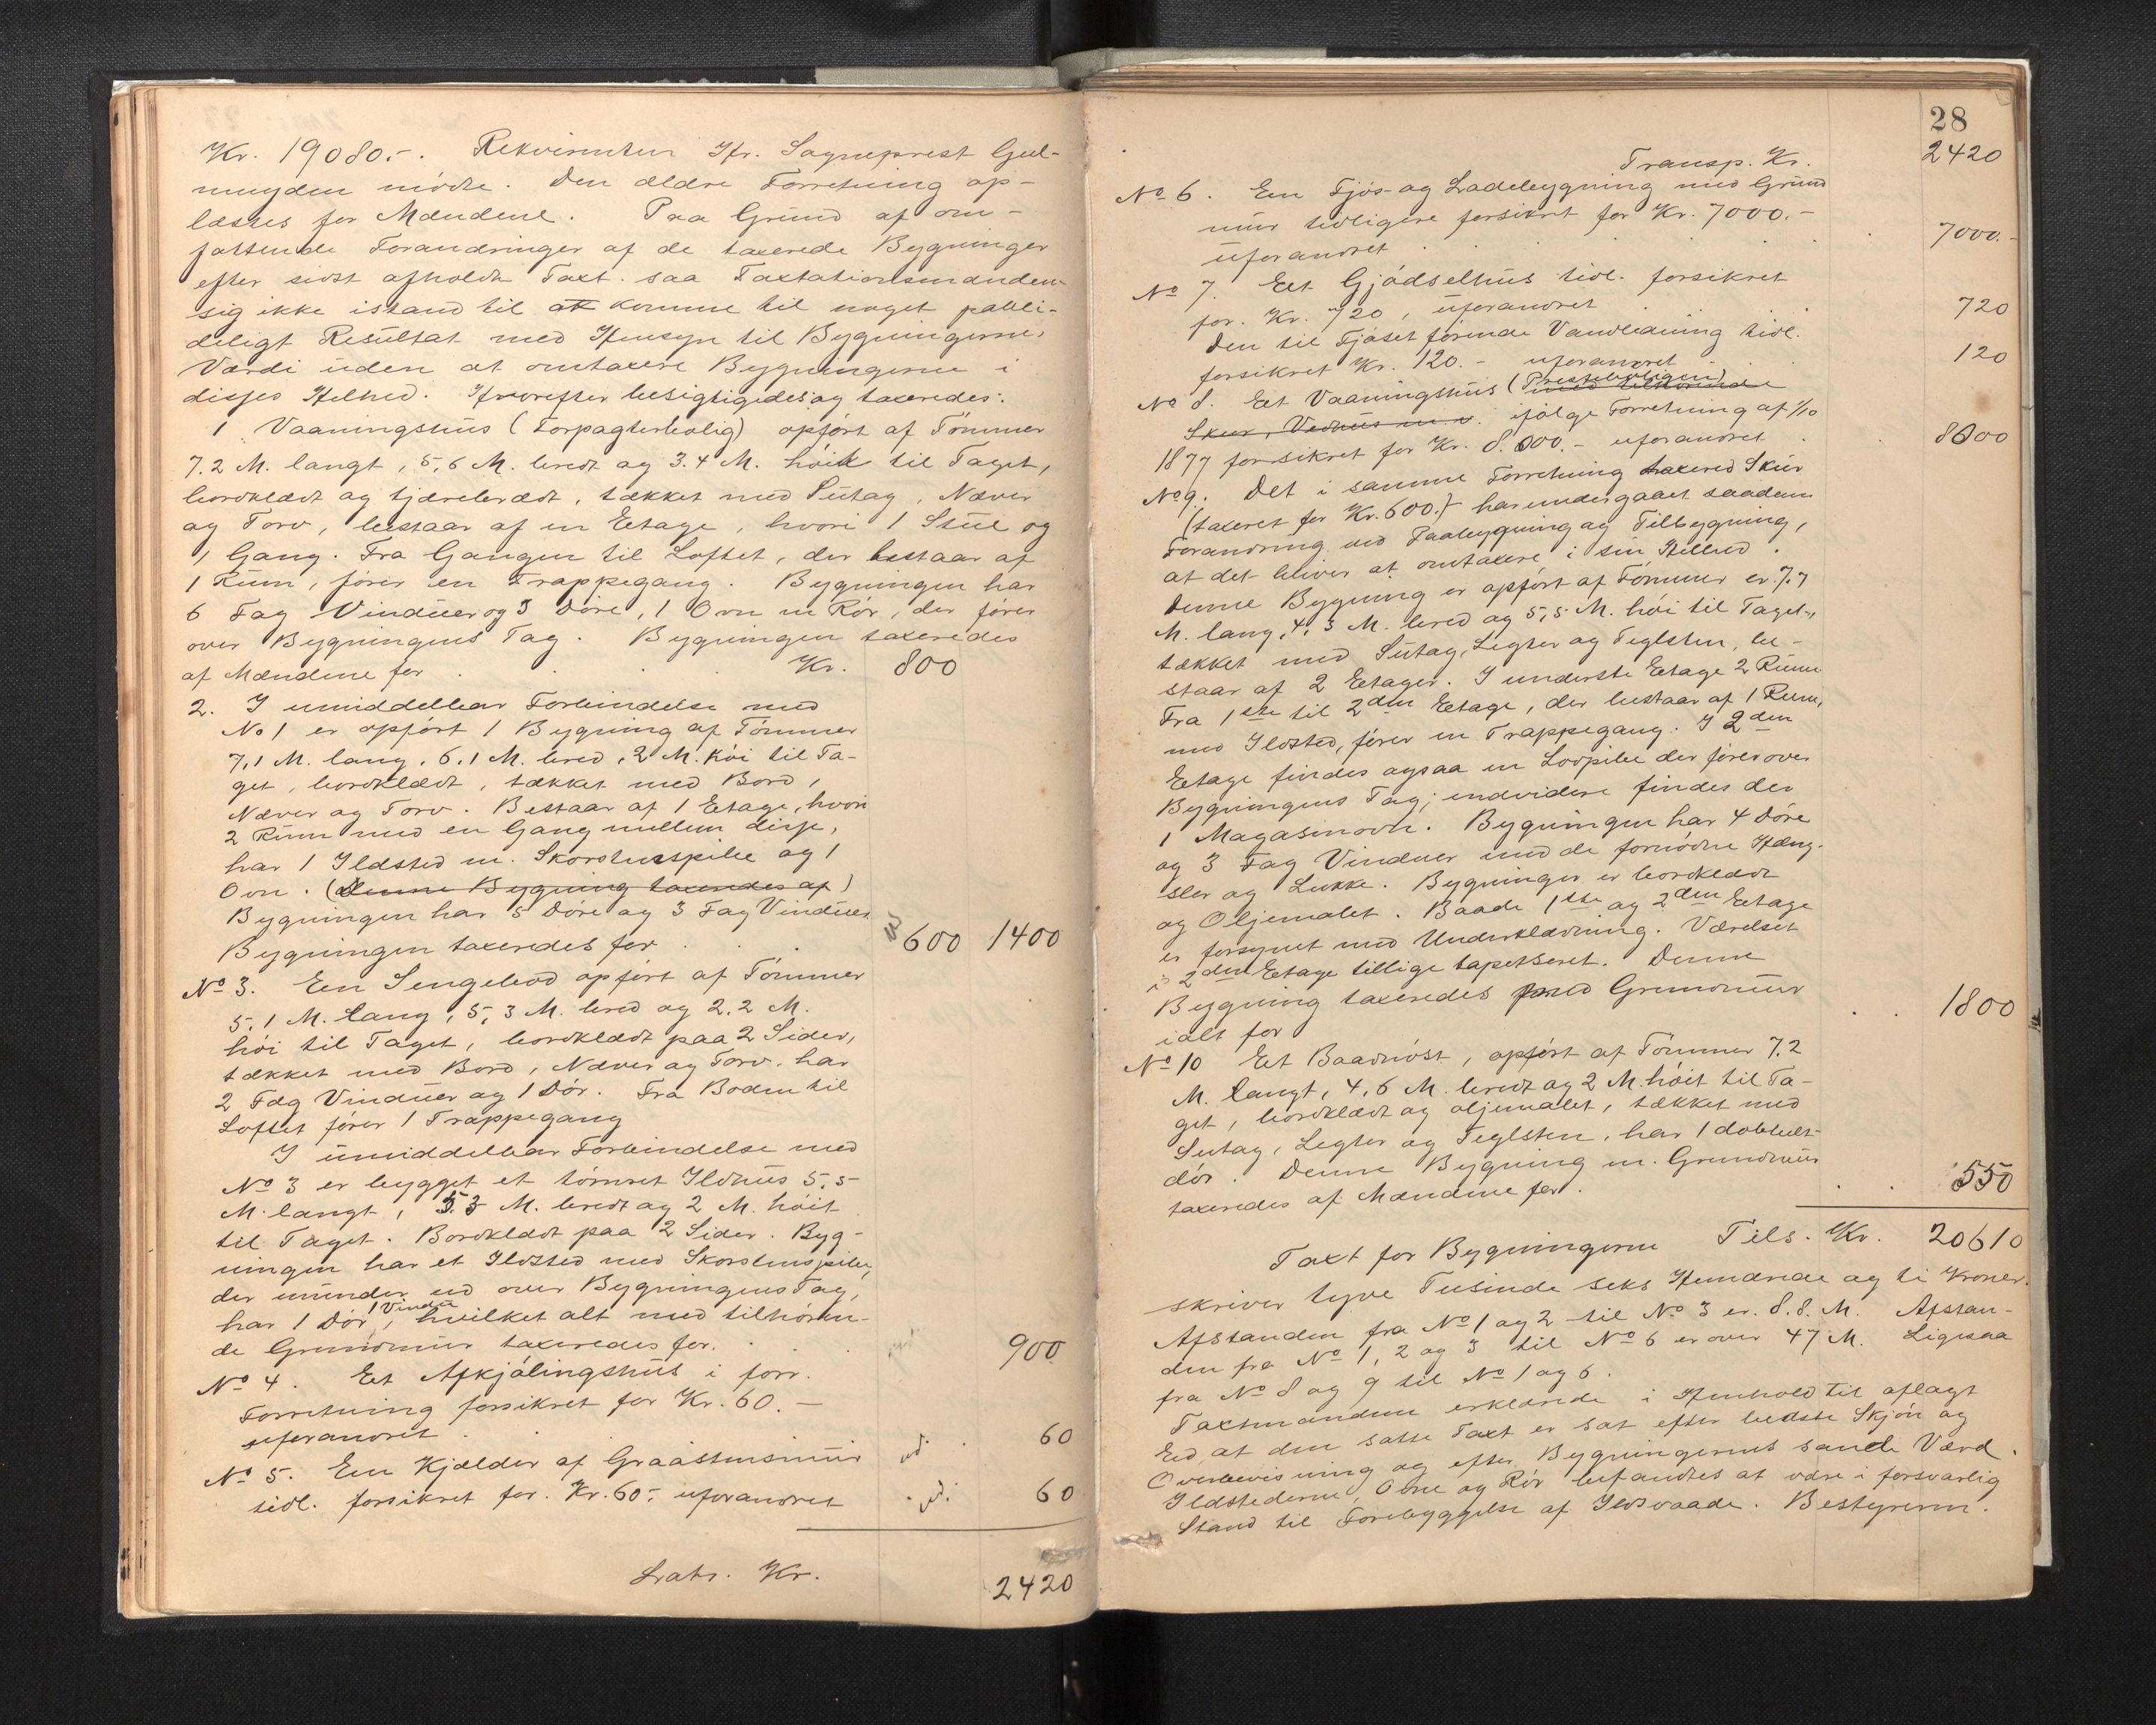 Kr. 19080.-. Rekvirenten Hr. Sogneprest Gjel-
muyden mödte. Den ældre Forretning op-
læstes for Mændene. Paa Grund af om-
fattende Forandringer af de taxerede Bygninger
efter sidst afholdt Taxt saa Taxtationsmændene
sig ikke istand til at komme til noget paali-
deligt Resultat med Hensyn til Bygningernes
Værdi uden at omtaxere Bygningerne i
disses Helhed. Hvorefter besigtigedes og taxeredes:
1. Vaaningshus (Forpagterbolig) opfört af Tömmer
7.2 M. langt, 5,6 M. bredt og 3.4 M. höit til Taget,
bordklædt og tjærebrædt, tækket med Sutag, Næver
og Torv, bestaar af en Etage, hvori 1 Stue og
1 Gang. Fra Gangen til Loftet, der bestaar af
1 Rum, förer en Trappegang. Bygningen har
6 Fag Vinduer og 3 Döre, 1 Ovn m Rör, der förer
over Bygningens Tag. Bygningen taxeredes
af Mændene for . . . Kr. 800
2. I umiddelbar Forbindelse med
No 1 er opfört 1 Bygning af Tömmer
7,1 M. lang, 6,1 M. bred, 2 M. höi til Ta-
get, bordklædt, tækket med Bord,
Næver og Torv. Bestaar af 1 Etage, hvori
2 Rum med en Gang mellem disse,
har 1 Ildsted m. Skorstenspibe og 1
Ovn. (Denne Bygning taxeredes af)
Bygningen har 5 Döre og 3 Fag Vinduer
Bygningen taxeredes for . . . 600 1400
No 3. Een Sengebod opfört af Tömmer
5,1 M. lang, 5,3 M. bred og 2,2 M.
höi til Taget, bordklædt paa 2 Sider,
tækket med Bord, Næver og Torv, har
2 Fag Vinduer og 1 Dör. Fra Boden til
Loftet förer 1 Trappegang
I umiddelbar Forbindelse med
No 3 er bygget et tömret Ildhus 5,5
M. langt, 5.3 M. bredt og 2 M. höit
til Taget. Bordklædt paa 2 Sider. Byg-
ningen har et Ildsted med Skorstenspibe,
der munder ud over Bygningens Tag,
har 1 Dör, 1 Vindue hvilket alt med tilhören-
de Grundmur taxeredes for. . . 900
No 4. Et Afkjölingshus i forr.
Forretning forsikret for Kr. 60.-
uforandret . . . 60
No 5. Een Kjælder af Graastensmur
tidl. forsikret for. Kr. 60.- uforandret 60
Lats. Kr. 2420
28
Transp. Kr. 2420
No 6. Een Fjös- og Ladebygning med Grund
mur tidligere forsikret for Kr. 7000.-
uforandret . . . 7000.-
No 7. Eet Gjödselhus tidl. forsikret
for. Kr. 720, uforandret . . 720
Den til Fjöset förende Vandledning tidl.
forsikret Kr. 120.- uforandret . 120
No 8. Eet Vaaningshus (Presteboligen) med tilhörende
Skur, Vedhus m.v. ifölge Forretning af 1/10
1877 forsikret for Kr. 8.000.- uforandret . 8000
No 9. Det i samme Forretning taxered Skur
(taxeret for Kr. 600.)- har undergaaet saadan
Forandring ved Paabygning og Tilbygning,
at det bliver at omtaxere i sin Helhed.
Denne Bygning er opfört af Tömmer er 7,7
M. lang, 4,3 M. bred og 5,5 M. höi til Taget,
tækket med Sutag, Legter og Teglsten, be-
staar af 2 Etager. I underste Etage 2 Rum
Fra 1ste til 2den Etage, der bestaar af 1 Rum,
med Ildsted, förer en Trappegang. I 2den
Etage findes ogsaa en Lodpibe der förer over
Bygningens Tag; endvidere findes der
1 Magasinovn. Bygningen har 4 Döre
og 3 Fag Vinduer med de fornödne Hæng-
sler og Lukke. Bygningen er bordklædt
og Oljemalet. Baade 1ste og 2den Etage
er forsynet med Underklædning. Værelset
i 2den Etage tillige tapetseret. Denne
Bygning taxeredes med Grundmur
ialt for . . 1800
No 10 Et Baadnöst, opfört af Tömmer 7.2
M. langt, 4,6 M. bredt og 2 M. höit til Ta-
get, bordklædt og oljemalet, tækket med
Sutag, Legter og Teglsten, har 1 dobbelt-
dör. Denne Bygning m. Grundmur
taxeredes af Mændene for. . . 550
Taxt for Bygningerne Tils. Kr. 20610
skriver tyve Tusinde seks Hundrede og ti Kroner.
Afstanden fra No 1 og 2 til No 3 er 8.8. M. Afstan-
den fra No 1, 2 og 3 til No 6 er over 47 M. Ligesaa
fra No 8 og 9 til No 1 og 6.
Taxtmændene erklærede i Henhold til aflagt
Eed, at den satte Taxt er sat efter bedste Skjön og
Overbevisning og efter Bygningernes sande Værd.
Ildstederne, Ovne og Rör befandtes at være i forsvarlig
Stand til Forebyggelse af Ildsvaade. Bestyreren.